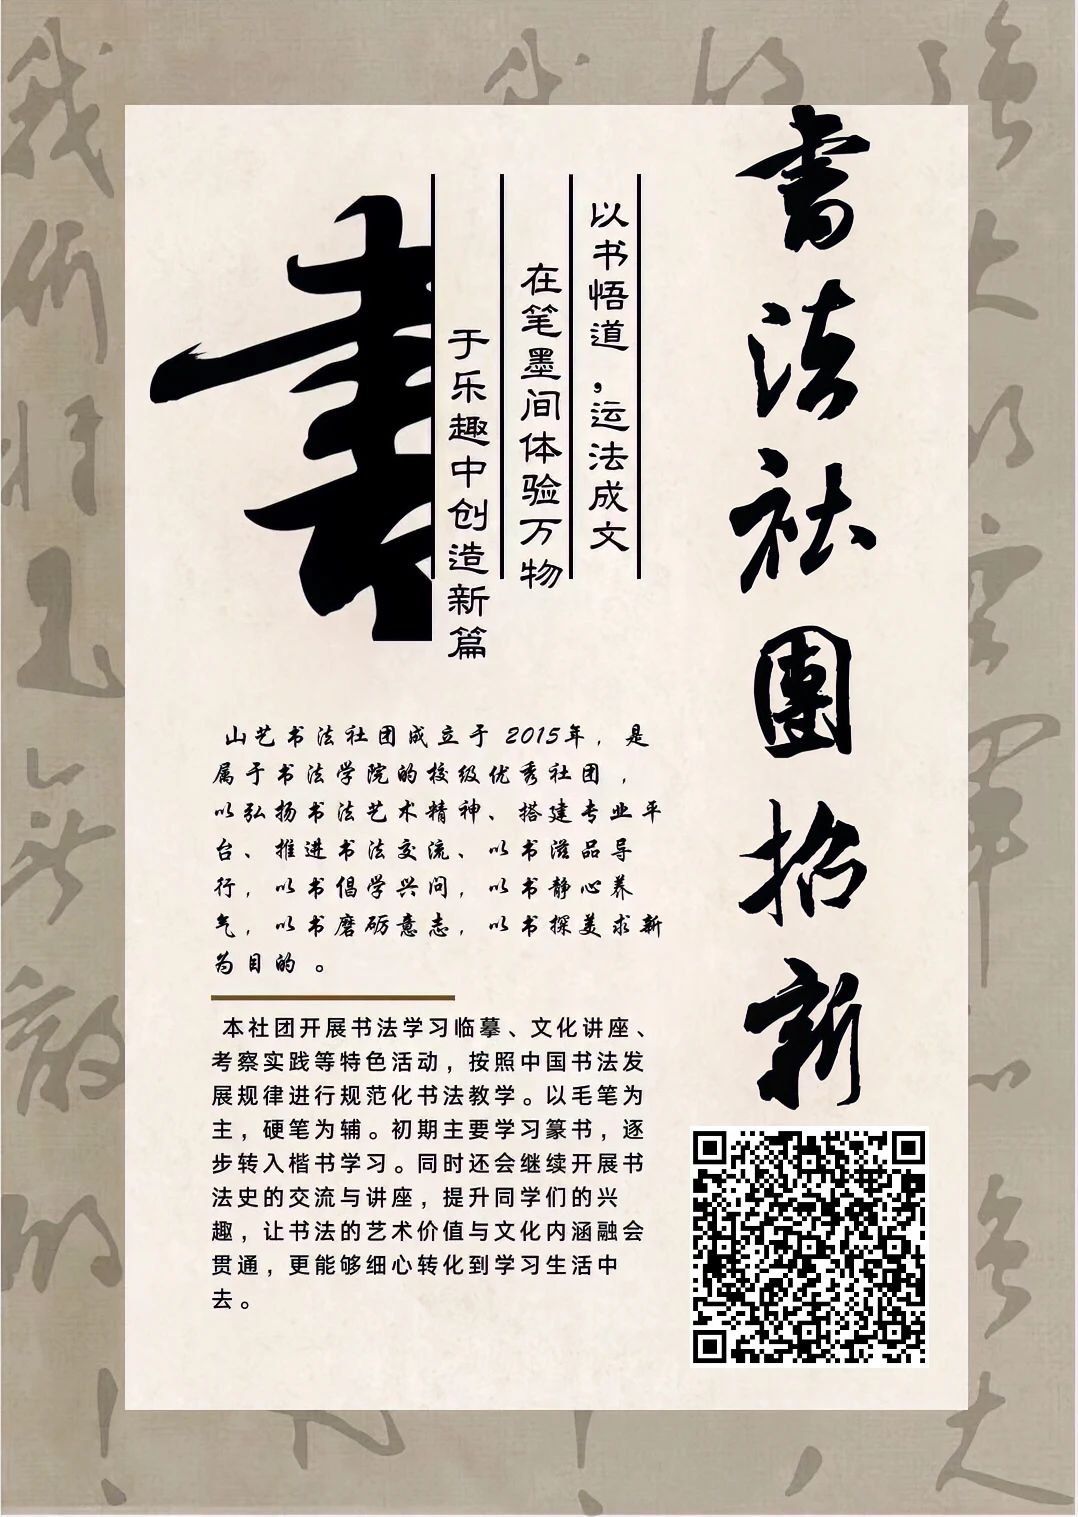 書法社團招新
以书悟道，运法成文
在笔墨间体验万物
于乐趣中创造新篇
書
山艺书法社团成立于 2015年，是
属于书法学院的校级优秀社团，
以弘扬书法艺术精神、搭建专业平
台、推进书法交流、以书滋品导
行，以书倡学兴问，以书静心养
气，以书磨砺意志，以书探美求新
为目的。
本社团开展书法学习临摹、文化讲座、
考察实践等特色活动，按照中国书法发
展规律进行规范化书法教学。以毛笔为
主，硬笔为辅。初期主要学习篆书，逐
步转入楷书学习。同时还会继续开展书
法史的交流与讲座，提升同学们的兴
趣，让书法的艺术价值与文化内涵融会
贯通，更能够细心转化到学习生活中
去。